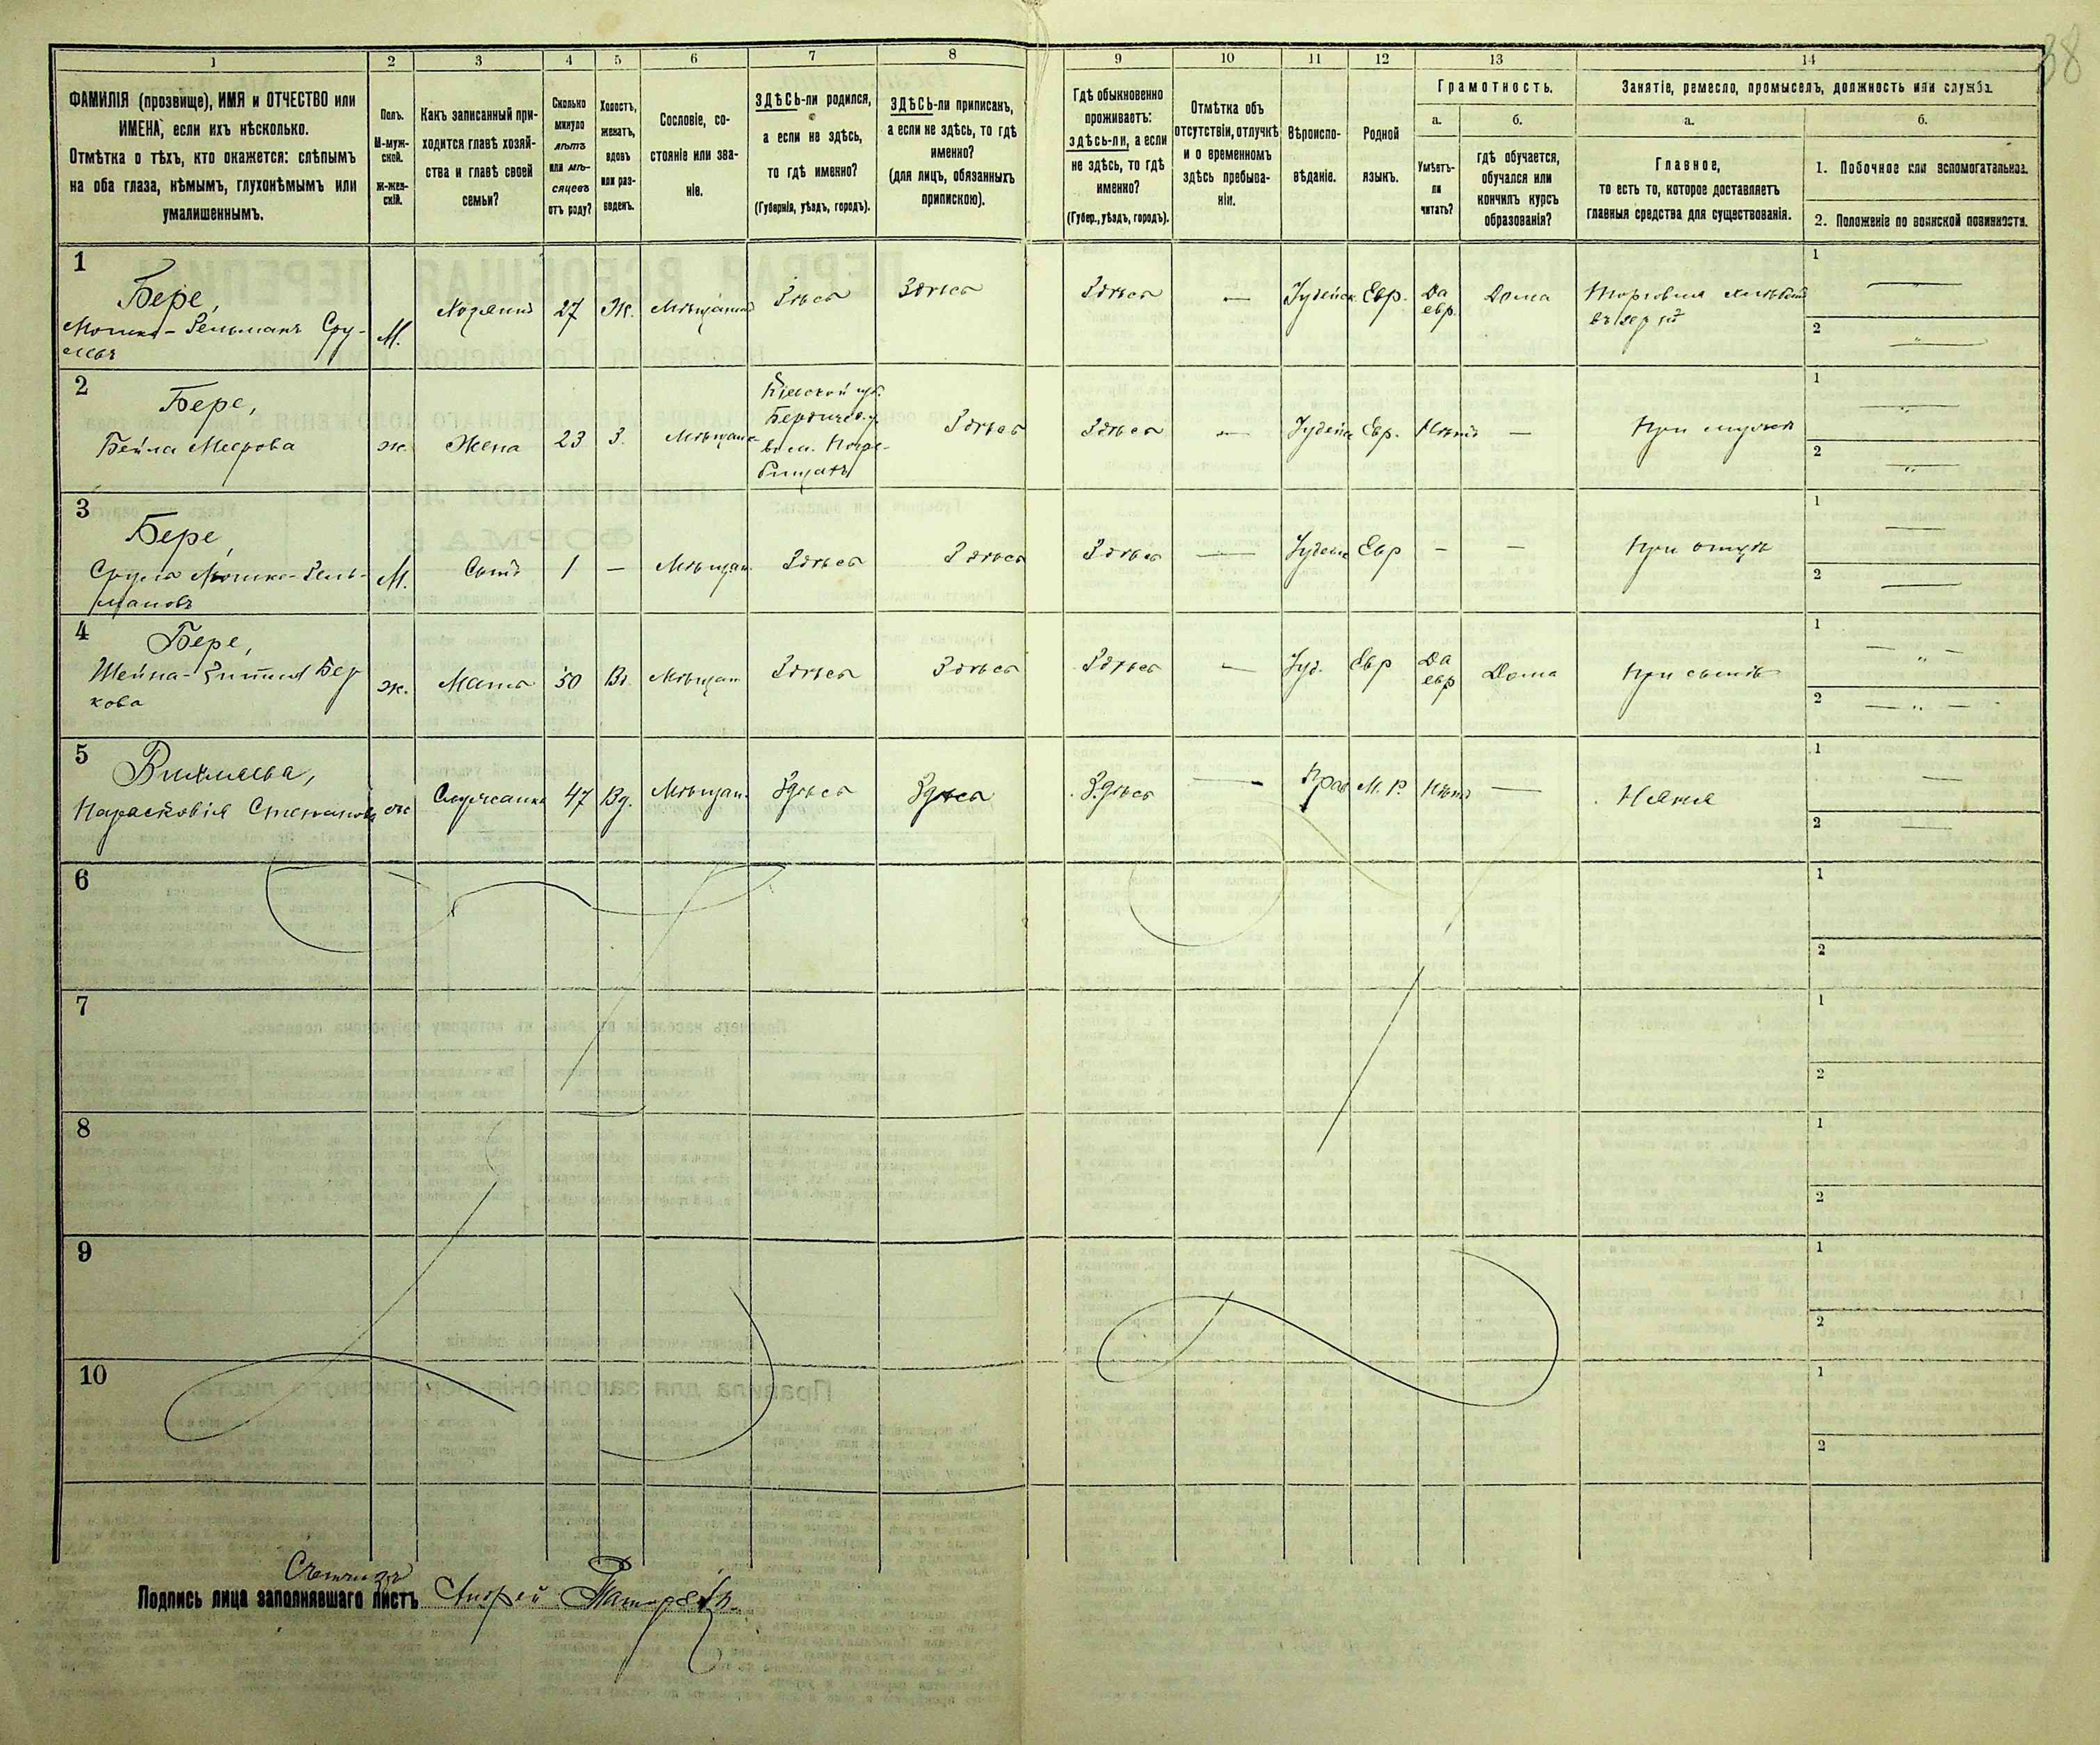 38
1 2 3 4 5 6 7 8 9 10 11 12 13 14
ФАМИЛІЯ (прозвище), ИМЯ и ОТЧЕСТВО или
ИМЕНА, если ихъ нѣсколько.
Отмѣтка о тѣхъ, кто окажется: слѣпымъ
на оба глаза, нѣмымъ, глухонѣмымъ или
умалишеннымъ.
Полъ.
М-муж-
ской.
Ж-жен-
скій.
Какъ записанный при-
ходится главѣ хозяй-
ства и главѣ своей
семьи?
Сколько
минуло
лѣтъ
или мѣ-
сяцевъ
отъ роду?
Холостъ,
женатъ,
вдовъ
или раз-
веденъ.
Сословіе, со-
стояніе или зва-
ніе.
ЗДѢСЬ-ли родился,
а если не здѣсь,
то гдѣ именно?
(Губернія, уѣздъ, городъ).
ЗДѢСЬ-ли приписанъ,
а если не здѣсь, то гдѣ
именно?
(для лицъ, обязанныхъ
припискою).
Гдѣ обыкновенно
проживаетъ:
здѣсь-ли, а если
не здѣсь, то гдѣ
именно?
(Губер., уѣздъ, городъ).
Отмѣтка объ
отсутствіи, отлучкѣ
и о временномъ
здѣсь пребыва-
ніи.
Вѣроиспо-
вѣданіе.
Родной
языкъ.
Грамотность.
а.
Умѣетъ-
ли
читать?
б.
гдѣ обучается,
обучался или
кончилъ курсъ
образованія?
Занятіе, ремесло, промыселъ, должность или служба.
а.
Главное,
то есть то, которое доставляетъ
главныя средства для существованія.
б.
1. Побочное или вспомогательное.
2. Положеніе по воинской повинности.
1
Бере,
Мошко-Гельманъ Сру-
левъ
М.
Хозяинъ
27
Ж.
Мѣщанинъ
Здѣсь
Здѣсь
Здѣсь
—
Іудейск.
Евр.
Да
евр.
Дома
Торговля хлѣбомъ
1
2
2
Бере,
Бейла Меерова
ж.
Жена
23
З.
Мѣщан
Кіевской губ.
Бердичев. у.
въ м. Погре-
бищахъ
Здѣсь
Здѣсь
—
Іудейск
Евр.
Нѣтъ
—
При мужѣ
1
2
3
Бере,
Сруль Мошко-Гель-
мановъ
М.
Сынъ
1
—
Мѣщан.
Здѣсь
Здѣсь
Здѣсь
—
Іудейс
Евр
—
—
При отцѣ
1
2
4
Бере,
Бер
кова
ж.
Мать
50
Вд.
Мѣщан
Здѣсь
Здѣсь
Здѣсь
—
Іуд.
Евр
Да
евр
Дома
При сынѣ
1
2
5
Парасковія Степанова
ж
Служанка
47
Вд.
Мѣщан.
Здѣсь
Здѣсь
Здѣсь
—
Прав
М. Р.
Нѣтъ
—
Няня
1
2
6
1
2
7
1
2
8
1
2
9
1
2
10
1
2
Счетчикъ
Подпись лица заполнявшаго листъ Андрей